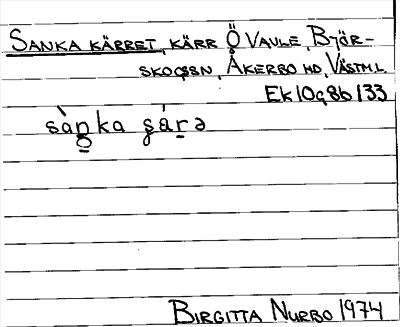 SANKA KÄRRET, KÄRR Ö VAULE, BJÖR-
SKOGSSN, ÅKERBO HD, VÄSTML.
EK 10g 8b 133
sàn̥ka ʂárə
BIRGITTA NURBO 1974